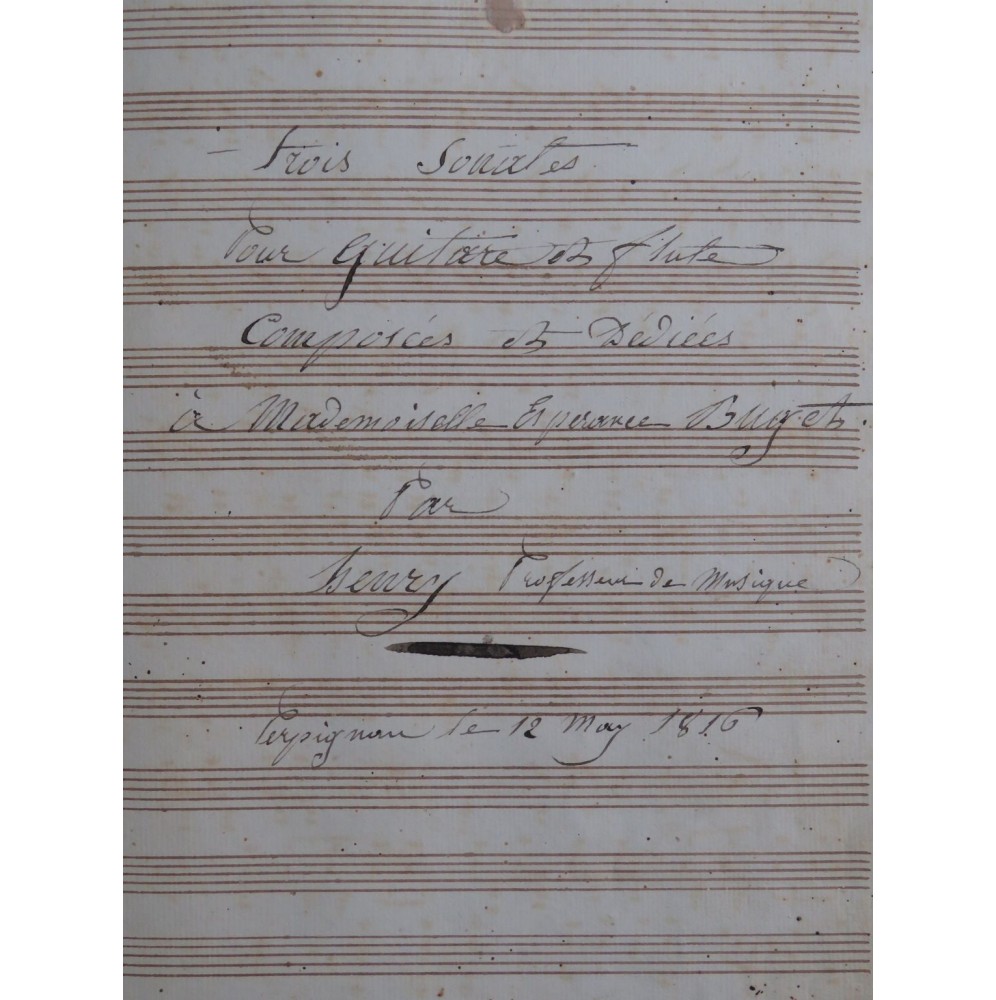 Trois Sonates
Pour Guitare et flute
Composées et Dédiées
à Mademoiselle Esperance Buget
Par
henry Professeur de Musique
Perpignan le 12 May 1816